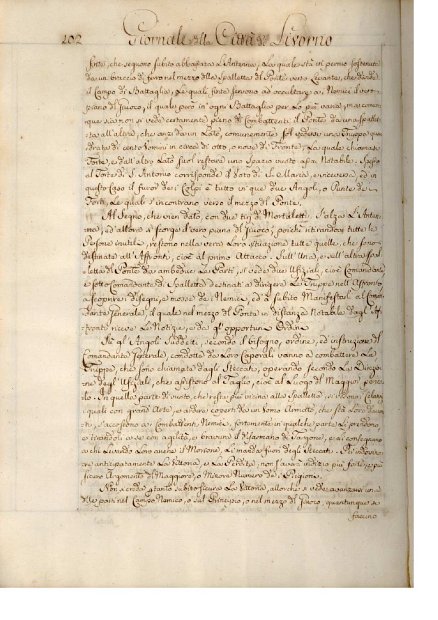 202 Giornali della Città di Livorno
finte, che seguono subito abbassata L'Antenna, La quale stà in perno sostenuta
da un braccio di ferro nel mezzo della Spalletta del Ponte verso Levante, che divide
il Campo di Battaglia, Le quali finte servono ad occultare a' Nemici il vero
piano di fuoco, il quale però in ogni Battaglia per Lo più varia, ma comun-
que sia non si vede certamente pieno di Combattenti il Ponte da una Spallet-
ta all'altra, che anzi da un Lato, comunemente suol vedersi una Truppa qua-
drata di cento uomini in circa di otto, o nove di Fronte, La quale chiamasi
Forte, e dall'altro Lato suol restare uno Spazio vuoto assai Notabile. Spesso
al Forte di S. Antonio corrisponde il Voto di S. Maria, e viceversa, ed in
questo caso il fuoco dei Colpi è tutto in que' due Angoli, o Punte de'
Forti, Le quali s'incontrano verso il mezzo del Ponte.
Al Segno, che vien dato, con due tiri di Mortaletti, s'alza L'Anten-
na, ed allora si scorge il vero piano di fuoco, poichè ritirandosi tutte Le
Persone inutili, restono nella vera Loro situazione tutte quelle, che sono
destinate all'Affronti, cioè al primo Attacco. Sull'Una, e sull'altra Spal-
letta di Ponte da ambedue Le Parti, si vede due Ufizali, cioè Comandante
e sotto Comandante di Spalletta destinati a dirigere Le Truppe nell'Affronto
a scoprire i disegni, e mosse de' Nemici, ed è subito Manifestarli al Coman-
dante Generale, il quale nel mezzo di Ponte in distanza Notabile dagl'Af-
fronti riceve Le Notizie, e dà gl'opportuni Ordini.
Per gl'Angoli Suddetti, secondo il bisogno, ordine, ed instruzione del
Comandante Generale, condotte da Loro Caporali vanno a combattere Le
Truppe, che sono chiamate dagli Steccati, operando secondo La Direzio-
ne degl'Ufizali, che assistono al Taglio, cioè al Luogo di Maggior perico-
lo. In quella parte di vuoto, che resta più vicina alla Spalletta, vi sono
quali con grand'Arte, e ardire coperti da un Uomo Armato, che stà Loro davan-
ti, s'accostono a' Combattenti Nemici, fortemente in qualche parte Li prendono,
e tirandoli a se con agilità, e bravura li disarmano di Targone, e gli consegnano
a chi Levando Loro anche il Morione, Li manda fuori degli Steccati. Per indovina-
re anticipatamente La Vittoria, o La Perdita, non ci sarà indizio più forte, e più
sicuro Argomento del Maggiore, o Minore Numero de' Prigioni.
Non si creda tanto subito sicura La Vittoria, allorchè si vede avanzare una
delle parti nel Campo Nemico, o sul Principio, o nel mezzo di fuoco, quantunque si
faccino